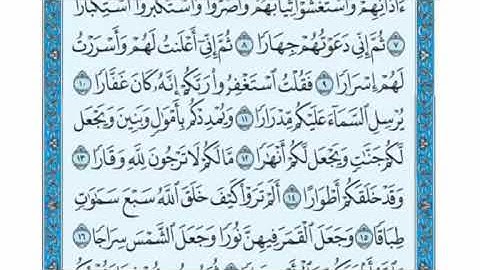 ءَاذَانِهِمْ وَٱسْتَغْشَوْا۟ ثِيَابَهُمْ وَأَصَرُّوا۟ وَٱسْتَكْبَرُوا۟ ٱسْتِكْبَارًا
٧ ثُمَّ إِنِّى دَعَوْتُهُمْ جِهَارًا ٨ ثُمَّ إِنِّىٓ أَعْلَنتُ لَهُمْ وَأَسْرَرْتُ
لَهُمْ إِسْرَارًا ٩ فَقُلْتُ ٱسْتَغْفِرُوا۟ رَبَّكُمْ إِنَّهُۥ كَانَ غَفَّارًا ١٠
يُرْسِلِ ٱلسَّمَآءَ عَلَيْكُم مِّدْرَارًا ١١ وَيُمْدِدْكُم بِأَمْوَٰلٍ وَبَنِينَ وَيَجْعَل
لَّكُمْ جَنَّٰتٍ وَيَجْعَل لَّكُمْ أَنْهَٰرًا ١٢ مَّا لَكُمْ لَا تَرْجُونَ لِلَّهِ وَقَارًا ١٣
وَقَدْ خَلَقَكُمْ أَطْوَارًا ١٤ أَلَمْ تَرَوْا۟ كَيْفَ خَلَقَ ٱللَّهُ سَبْعَ سَمَٰوَٰتٍ
طِبَاقًا ١٥ وَجَعَلَ ٱلْقَمَرَ فِيهِنَّ نُورًا وَجَعَلَ ٱلشَّمْسَ سِرَاجًا ١٦